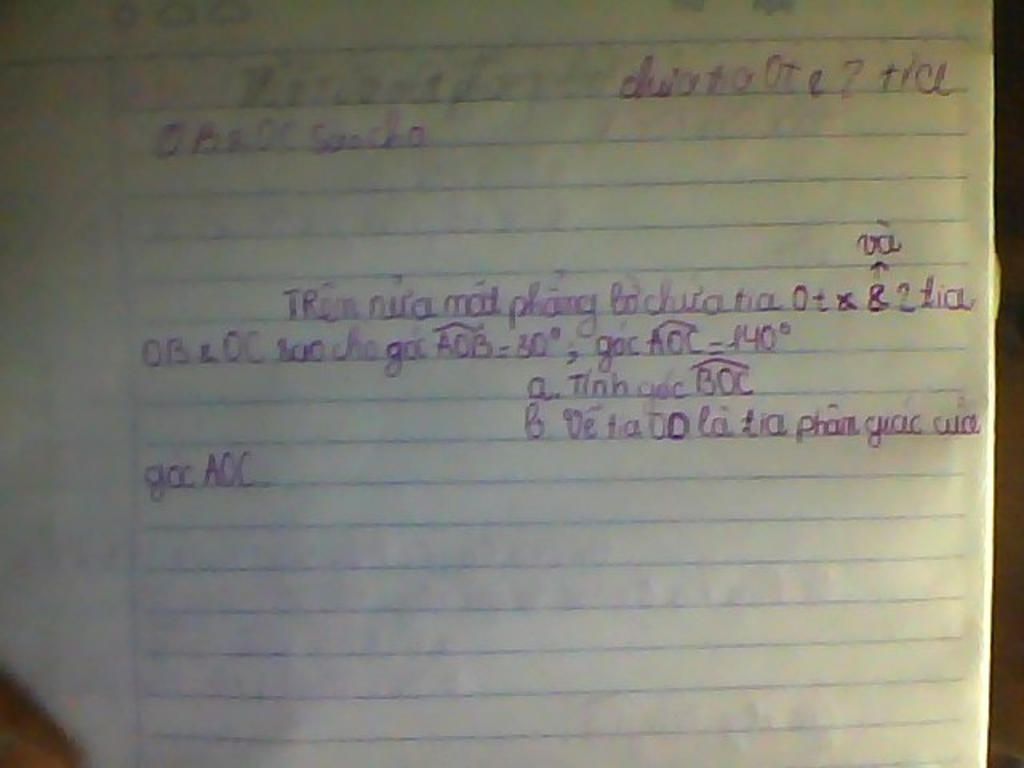 chứa tia Ot 2 tia
OB & OC sao cho
và
Trên nửa mặt phẳng bờ chứa tia Ot & 2 tia
OB & OC sao cho góc AOB = 30°, góc AOC = 140°
a. Tính góc BOC
b Vẽ tia OD là tia phân giác của
góc AOC